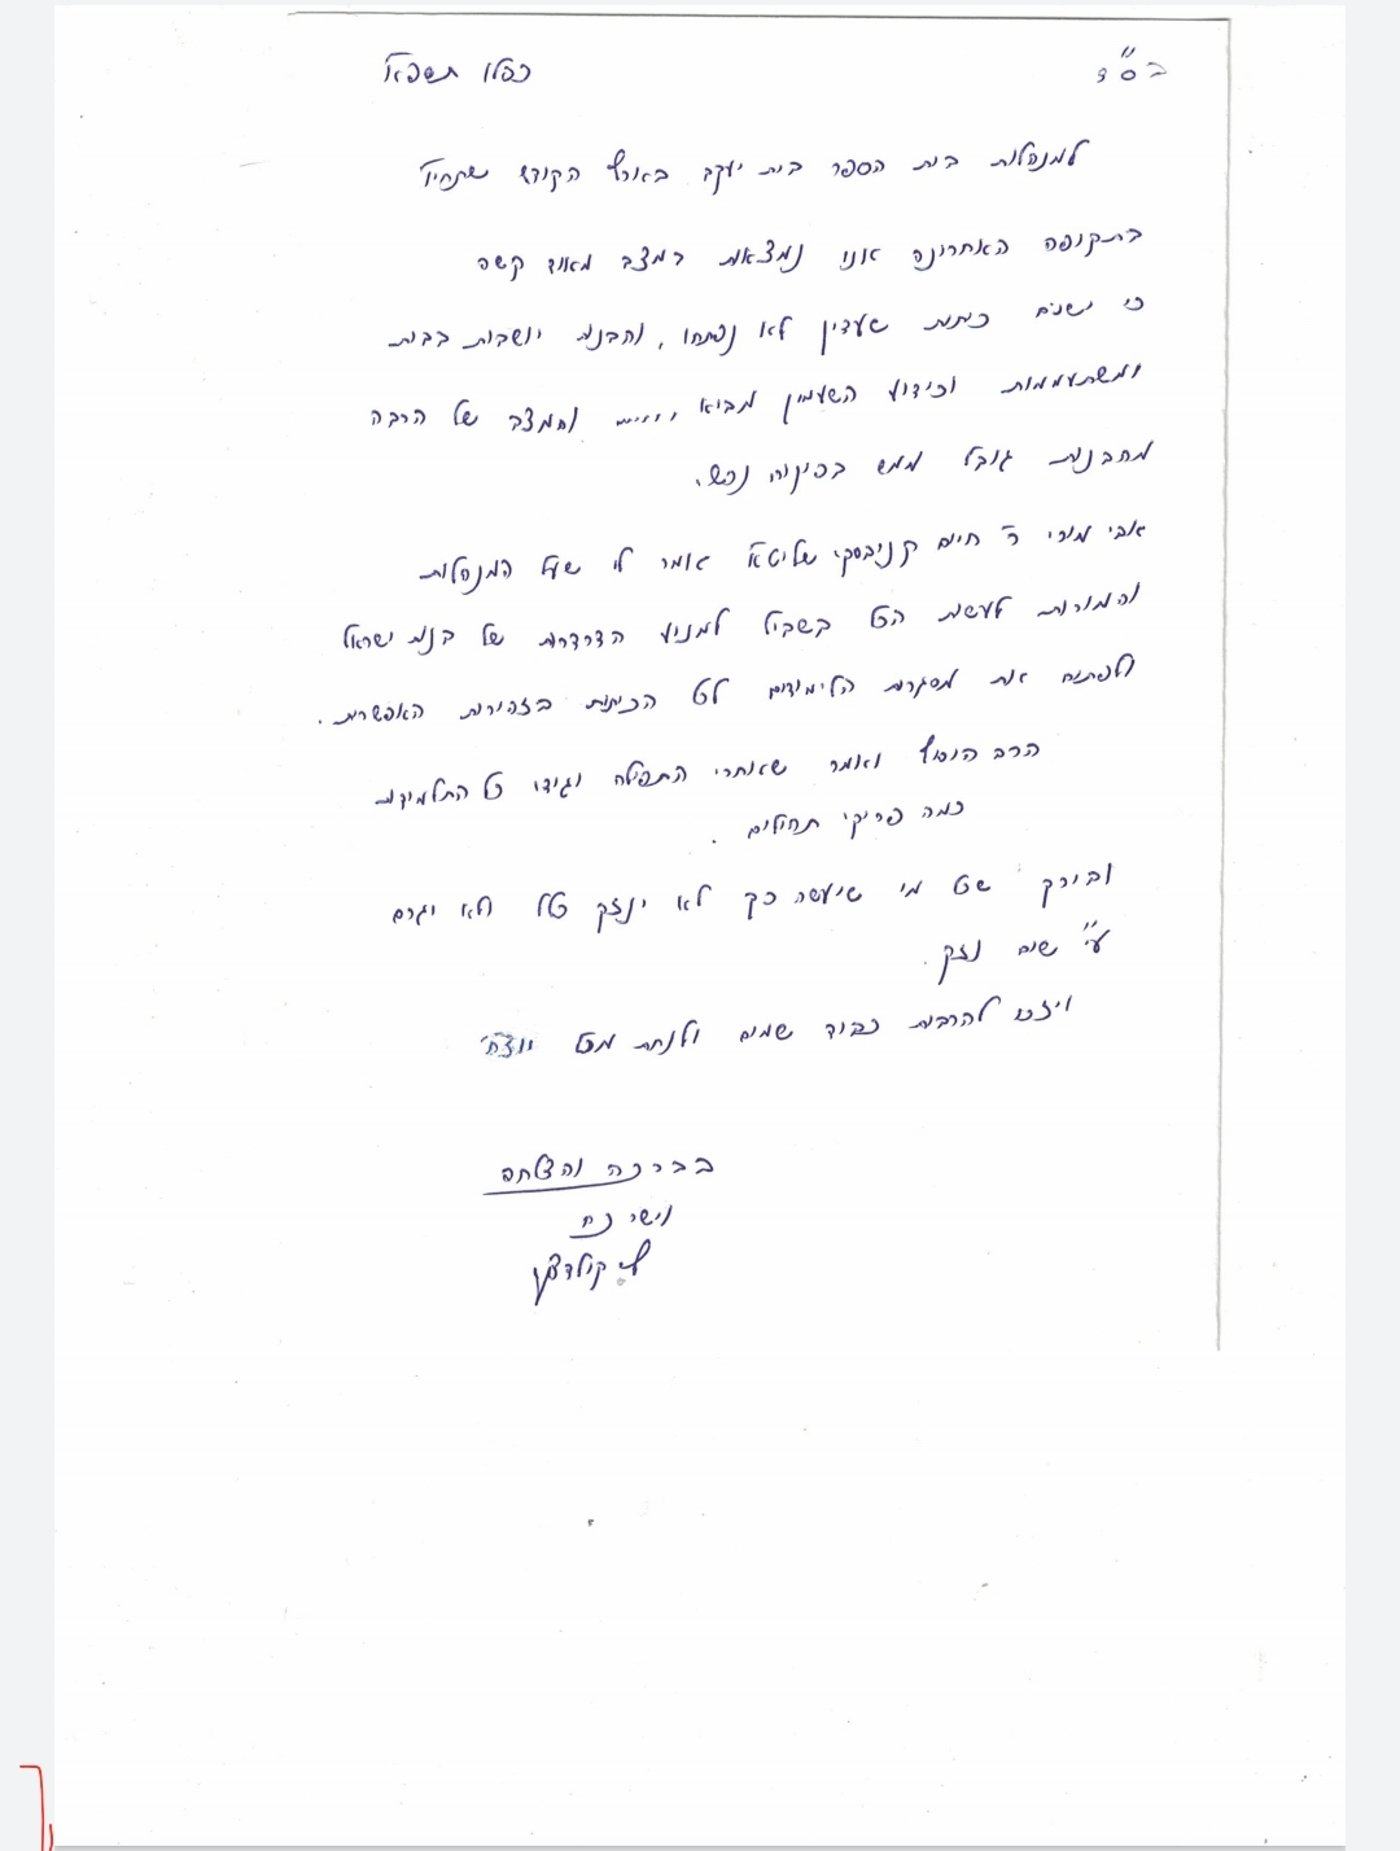 בס"ד
כסלו תשפ"א
למנהלות בית הספר בית יעקב בארץ הקודש שתחיו'
בתקופה האחרונה אני נמצאת במצב מאוד קשה
כי ישנם כיתות שעדין לא נפתחו, והבנות יושבות בבית
ומשתעממות וכידוע השעמום מביא וחמצב של הרבה
מהבנות גובל ממש בפיקוח נפש.
אבי מורי ר' חיים קניבסקי שליט"א אומר לי שעל המנהלות
והמורות לעשות הכל בשביל למנוע הדרדרות של בנות ישראל
ולפתוח את מסגרת הלימודים לכל הכיתות בזהירות האפשרית.
הרב הוסיף ואומר שאחרי התפילה יגידו כל התלמידות
כמה פריקי תהילים.
ובירך שכל מי שיעשה כך לא ינזק כלל ולא יגרם
ע"י שום נזק.
ויזכו להרבות כבוד שמים ולנחת מכל יוצ"ח
בברכה והצלחה
ויישר כח
קולדצקי